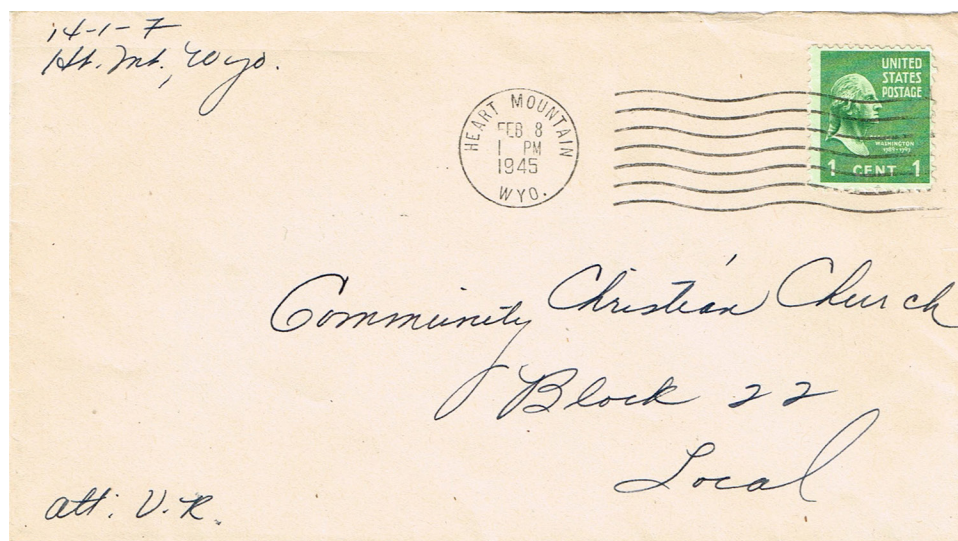 14-1-F
Ht. Mt., Wyo.
HEART MOUNTAIN
FEB 8
1 PM
1945
WYO.
UNITED
STATES
POSTAGE
WASHINGTON
1789-1797
1 CENT 1
Community Christian Church
Block 22
Local
Att: V.R.